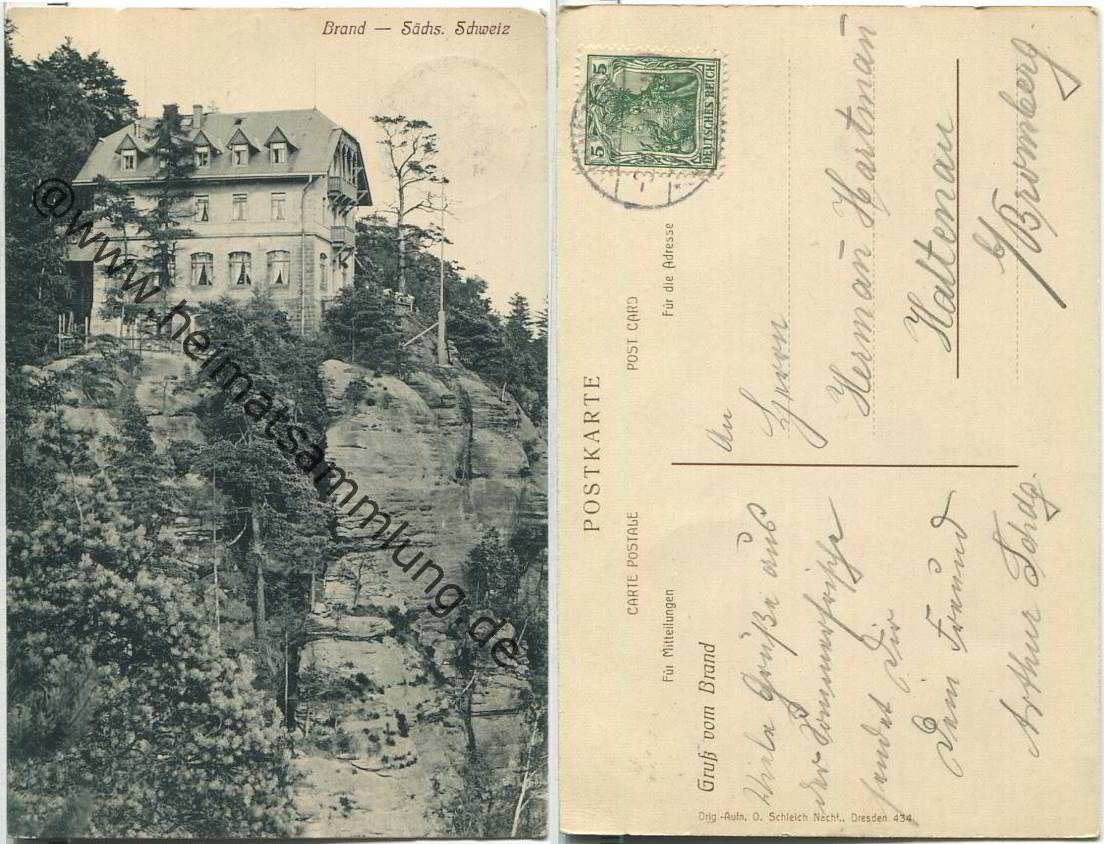 Brand — Sächs. Schweiz
@www.heimatsammlung.de
POSTKARTE
CARTE POSTALE
POST CARD
Für Mitteilungen
Für die Adresse
DEUTSCHES REICH
5
5
Gruß vom Brand
Viele Grüße aus
der Sommerfrische
sendet Dir
Dein Freund
Arthur
An
Herrn
Herman Hartman
Haltenau
b/Bromberg.
Orig.-Aufn. O. Schleich Nachf., Dresden 434